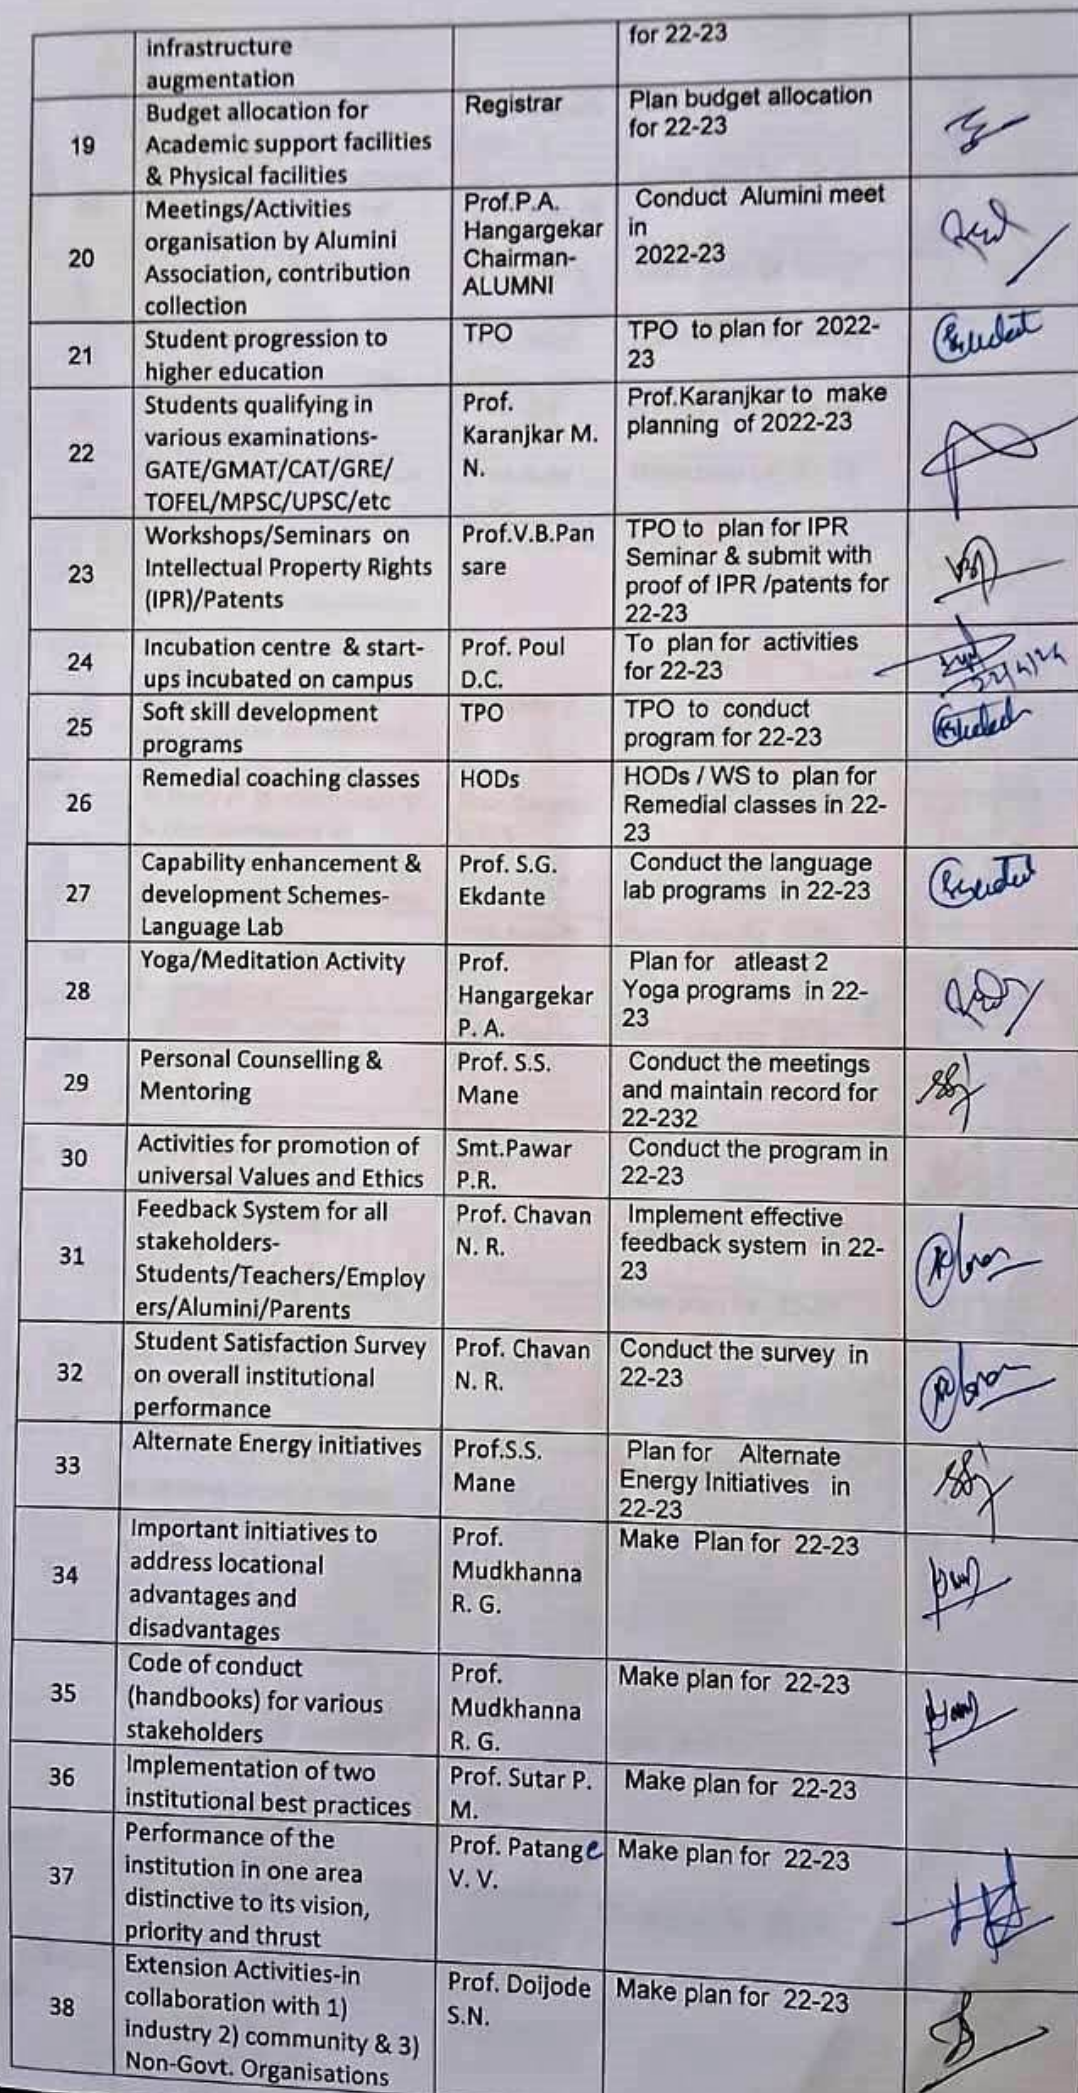 infrastructure
augmentation
for 22-23
19
Budget allocation for
Academic support facilities
& Physical facilities
Registrar
Plan budget allocation
for 22-23
20
Meetings/Activities
organisation by Alumini
Association, contribution
collection
Prof.P.A.
Hangargekar
Chairman-
ALUMNI
Conduct Alumini meet
in
2022-23
21
Student progression to
higher education
TPO
TPO to plan for 2022-
23
22
Students qualifying in
various examinations-
GATE/GMAT/CAT/GRE/
TOFEL/MPSC/UPSC/etc
Prof.
Karanjkar M.
N.
Prof.Karanjkar to make
planning of 2022-23
23
Workshops/Seminars on
Intellectual Property Rights
(IPR)/Patents
Prof.V.B.Pan
sare
TPO to plan for IPR
Seminar & submit with
proof of IPR /patents for
22-23
24
Incubation centre & start-
ups incubated on campus
Prof. Poul
D.C.
To plan for activities
for 22-23
25
Soft skill development
programs
TPO
TPO to conduct
program for 22-23
26
Remedial coaching classes
HODs
HODs / WS to plan for
Remedial classes in 22-
23
27
Capability enhancement &
development Schemes-
Language Lab
Prof. S.G.
Ekdante
Conduct the language
lab programs in 22-23
28
Yoga/Meditation Activity
Prof.
Hangargekar
P. A.
Plan for atleast 2
Yoga programs in 22-
23
29
Personal Counselling &
Mentoring
Prof. S.S.
Mane
Conduct the meetings
and maintain record for
22-232
30
Activities for promotion of
universal Values and Ethics
Smt.Pawar
P.R.
Conduct the program in
22-23
31
Feedback System for all
stakeholders-
Students/Teachers/Employ
ers/Alumini/Parents
Prof. Chavan
N. R.
Implement effective
feedback system in 22-
23
32
Student Satisfaction Survey
on overall institutional
performance
Prof. Chavan
N. R.
Conduct the survey in
22-23
33
Alternate Energy initiatives
Prof.S.S.
Mane
Plan for Alternate
Energy Initiatives in
22-23
34
Important initiatives to
address locational
advantages and
disadvantages
Prof.
Mudkhanna
R. G.
Make Plan for 22-23
35
Code of conduct
(handbooks) for various
stakeholders
Prof.
Mudkhanna
R. G.
Make plan for 22-23
36
Implementation of two
institutional best practices
Prof. Sutar P.
M.
Make plan for 22-23
37
Performance of the
institution in one area
distinctive to its vision,
priority and thrust
Prof. Patange
V. V.
Make plan for 22-23
38
Extension Activities-in
collaboration with 1)
industry 2) community & 3)
Non-Govt. Organisations
Prof. Doijode
S.N.
Make plan for 22-23